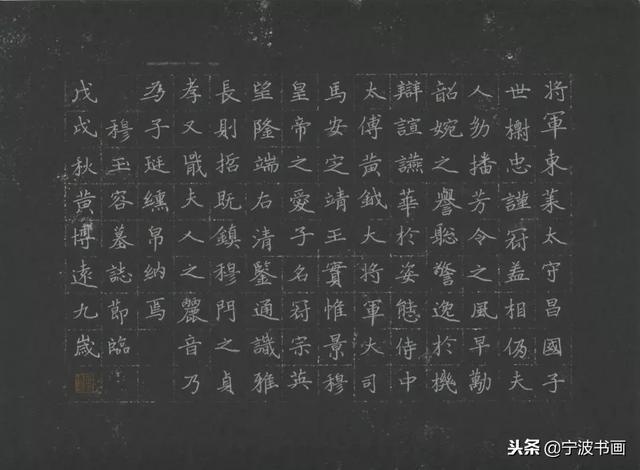 將軍東萊太守昌國子
世樹忠謹冠盖相仍夫
人幼播芳令之風早勤
韶婉之譽聡警逸於機
辯諠讌華於姿態侍中
太傅黄鉞大將軍大司
馬安定靖王實惟景穆
皇帝之愛子名冠宗英
望隆端右清鑒通識雅
長則哲既鎮穆門之貞
孝又戢夫人之麗音乃
為子珽纁帛納焉
穆玉容墓誌節臨
戊戌秋黄博遠九歲
头条@宁波书画